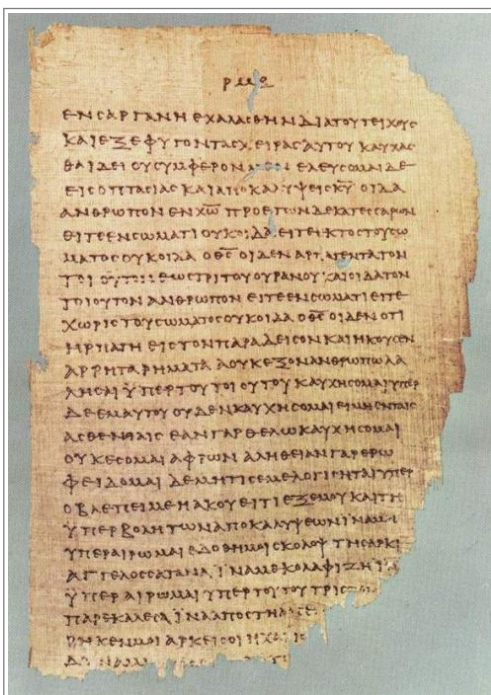 ΕΝ ΣΑΡΓΑΝΗ ΕΧΑΛΑΣΘΗΝ ΔΙΑ ΤΟΥ ΤΕΙΧΟΥΣ
ΚΑΙ ΕΞΕΦΥΓΟΝ ΤΑΣ ΧΕΙΡΑΣ ΑΥΤΟΥ ΚΑΥΧΑΣ
ΘΑΙ ΔΕΙ ΟΥ ΣΥΜΦΕΡΟΝ ΕΛΕΥΣΟΜΑΙ ΔΕ
ΕΙΣ ΟΠΤΑΣΙΑΣ ΚΑΙ ΑΠΟΚΑΛΥΨΕΙΣ ΚΥ ΟΙΔΑ
ΑΝΘΡΩΠΟΝ ΕΝ ΧΩ ΠΡΟ ΕΤΩΝ ΔΕΚΑΤΕΣΣΑΡΩΝ
ΕΙΤΕ ΕΝ ΣΩΜΑΤΙ ΟΥΚ ΟΙΔΑ ΕΙΤΕ ΕΚΤΟΣ ΤΟΥ ΣΩ
ΜΑΤΟΣ ΟΥΚ ΟΙΔΑ Ο ΘΣ ΟΙΔΕΝ ΑΡΠΑΓΕΝΤΑ ΤΟΝ
ΤΟΙΟΥΤΟΝ ΕΩΣ ΤΡΙΤΟΥ ΟΥΡΑΝΟΥ ΚΑΙ ΟΙΔΑ ΤΟΝ
ΤΟΙΟΥΤΟΝ ΑΝΘΡΩΠΟΝ ΕΙΤΕ ΕΝ ΣΩΜΑΤΙ ΕΙΤΕ
ΧΩΡΙΣ ΤΟΥ ΣΩΜΑΤΟΣ ΟΥΚ ΟΙΔΑ Ο ΘΣ ΟΙΔΕΝ ΟΤΙ
ΗΡΠΑΓΗ ΕΙΣ ΤΟΝ ΠΑΡΑΔΕΙΣΟΝ ΚΑΙ ΗΚΟΥΣΕΝ
ΑΡΡΗΤΑ ΡΗΜΑΤΑ Α ΟΥΚ ΕΞΟΝ ΑΝΘΡΩΠΩ ΛΑ
ΛΗΣΑΙ ΥΠΕΡ ΤΟΥ ΤΟΙΟΥΤΟΥ ΚΑΥΧΗΣΟΜΑΙ ΥΠΕΡ
ΔΕ ΕΜΑΥΤΟΥ ΟΥΔΕΝ ΚΑΥΧΗΣΟΜΑΙ ΕΙ ΜΗ ΕΝ ΤΑΙΣ
ΑΣΘΕΝΕΙΑΙΣ ΕΑΝ ΓΑΡ ΘΕΛΩ ΚΑΥΧΗΣΟΜΑΙ
ΟΥΚ ΕΣΟΜΑΙ ΑΦΡΩΝ ΑΛΗΘΕΙΑΝ ΓΑΡ ΕΡΩ
ΦΕΙΔΟΜΑΙ ΔΕ ΜΗ ΤΙΣ ΕΜΕ ΛΟΓΙΣΗΤΑΙ ΥΠΕΡ
Ο ΒΛΕΠΕΙ ΜΕ Η ΑΚΟΥΕΙ ΤΙ ΕΞ ΕΜΟΥ ΚΑΙ ΤΗ
ΥΠΕΡΒΟΛΗ ΤΩΝ ΑΠΟΚΑΛΥΨΕΩΝ ΙΝΑ ΜΗ
ΥΠΕΡΑΙΡΩΜΑΙ ΕΔΟΘΗ ΜΟΙ ΣΚΟΛΟΨ ΤΗ ΣΑΡΚΙ
ΑΓΓΕΛΟΣ ΣΑΤΑΝΑ ΙΝΑ ΜΕ ΚΟΛΑΦΙΖΗ
ΥΠΕΡΑΙΡΩΜΑΙ ΥΠΕΡ ΤΟΥΤΟΥ ΤΡΙΣ
ΠΑΡΕΚΑΛΕΣΑ ΙΝΑ ΑΠΟΣΤΗ
ΡΗΚΕΝ ΜΟΙ ΑΡΚΕΙ ΣΟΙ Η ΧΑΡΙΣ